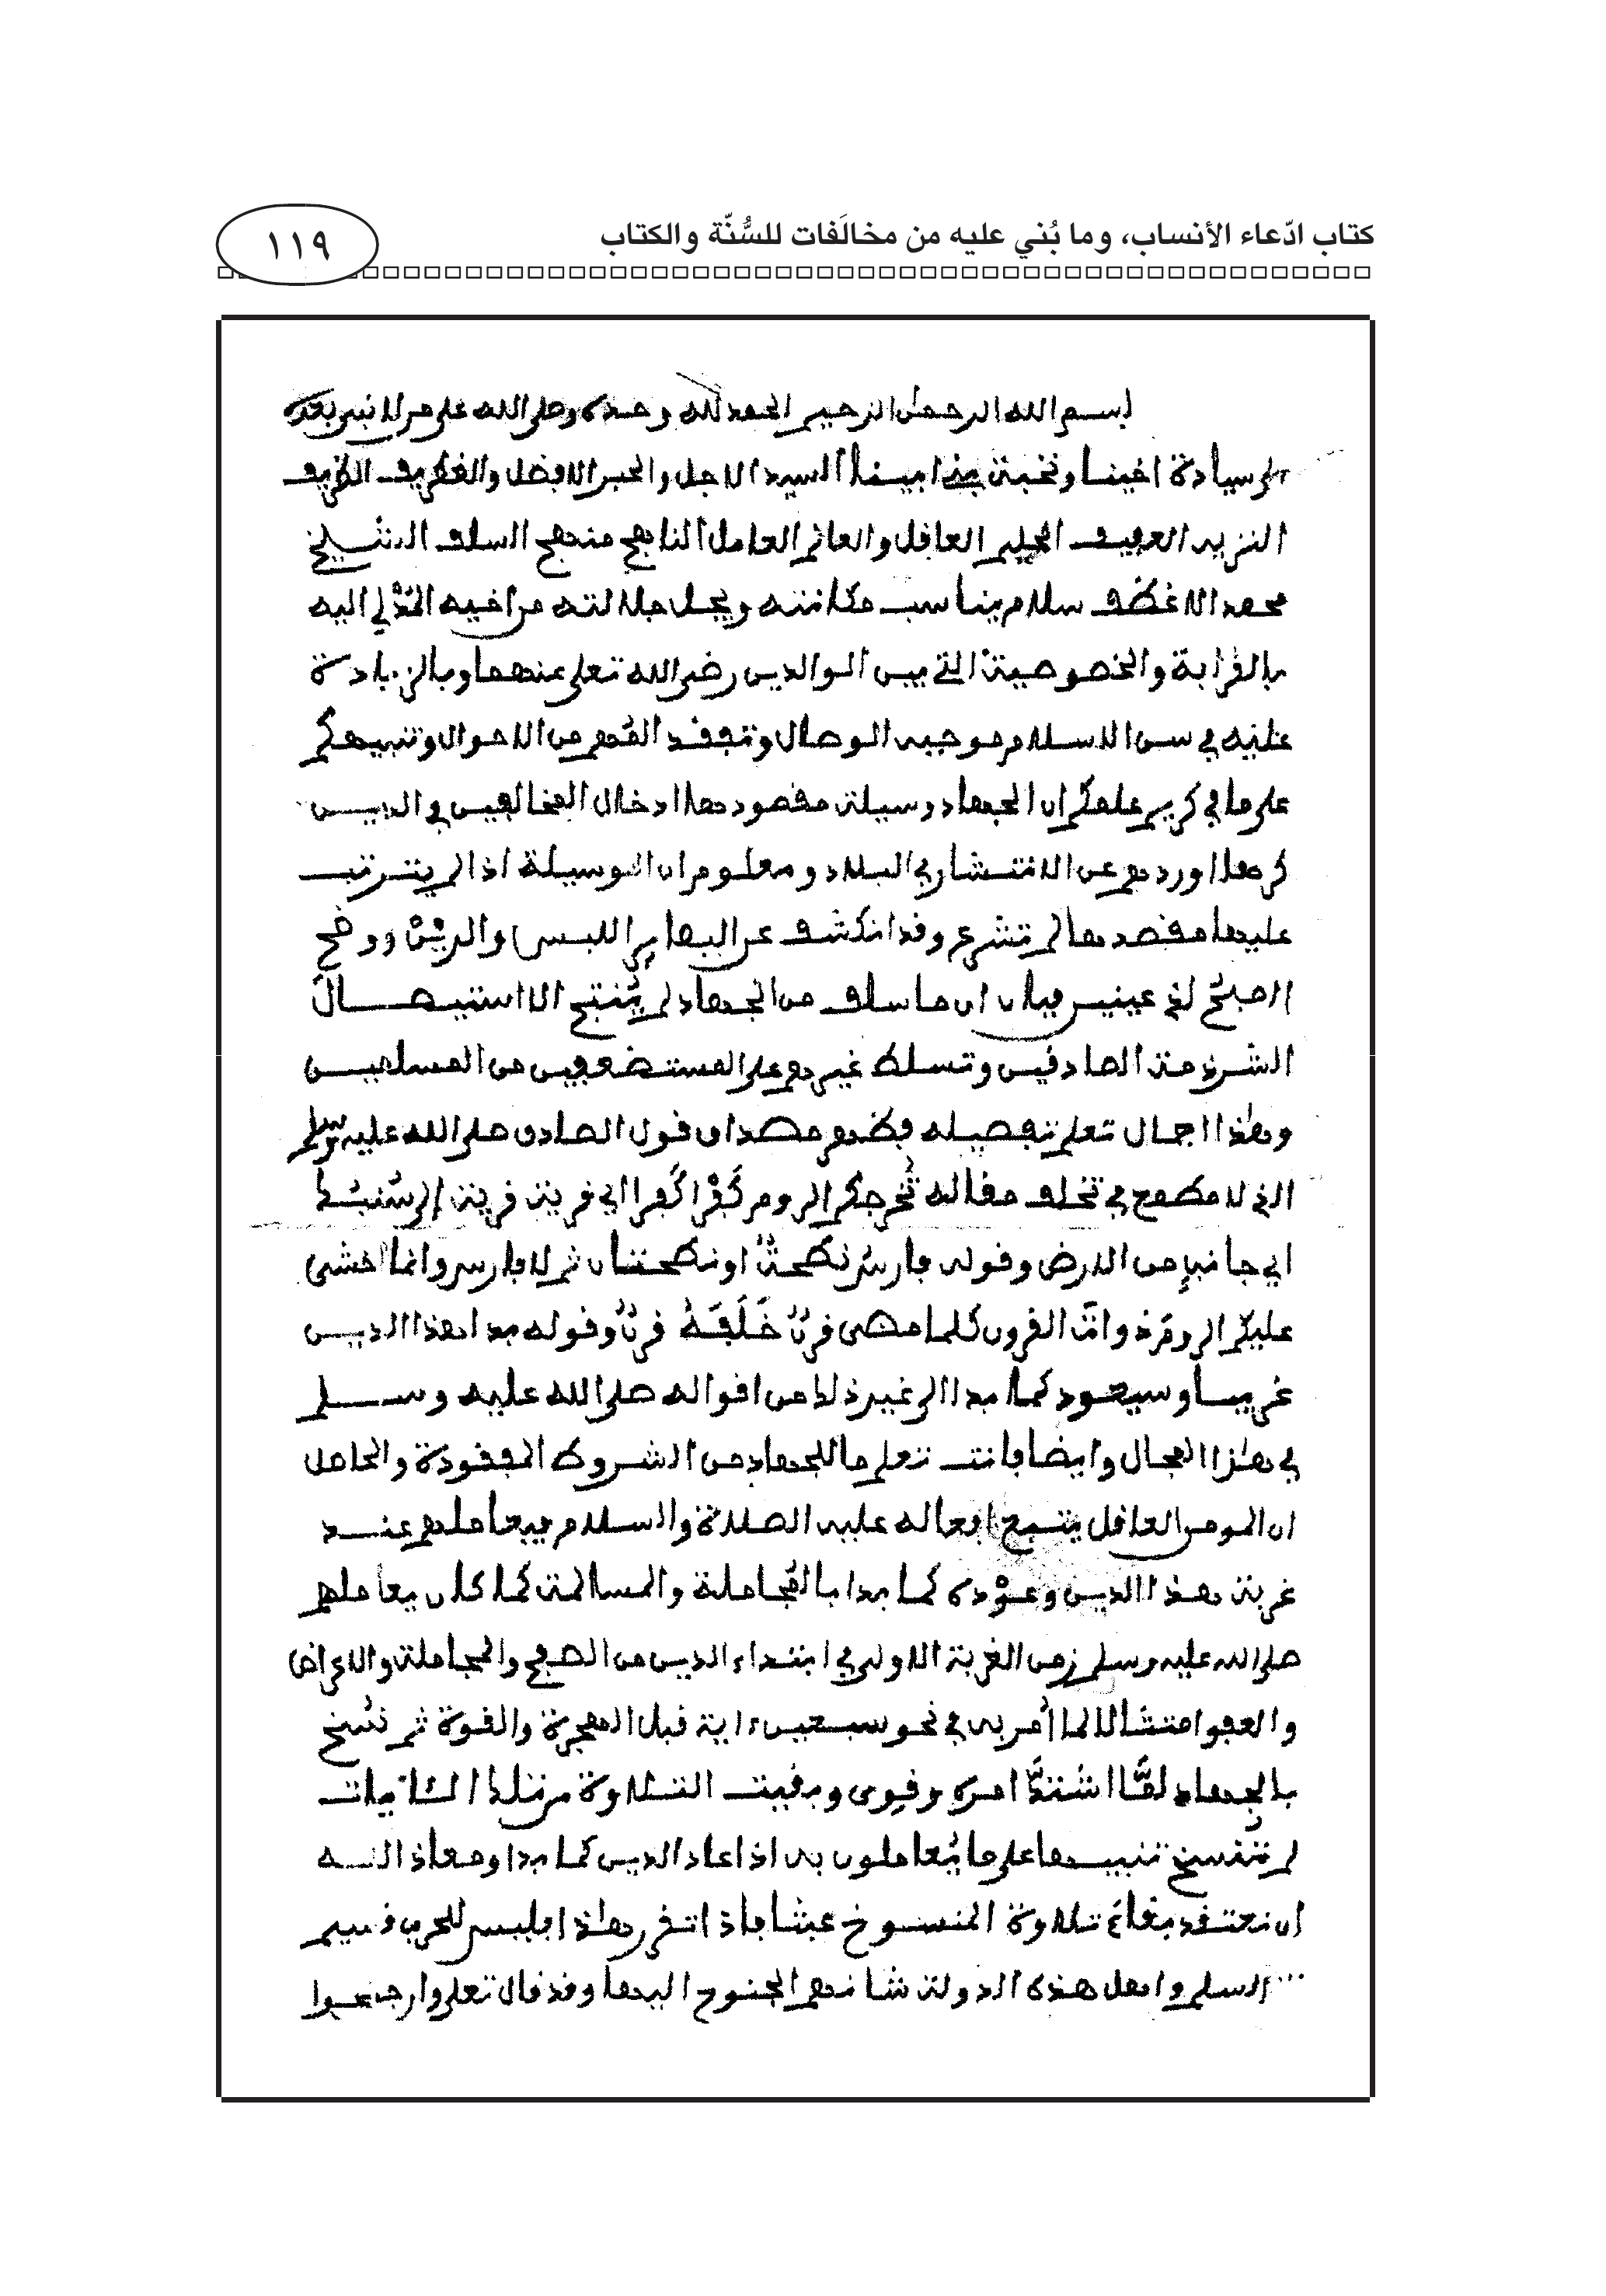 كتاب ادّعاء الأنساب، وما بُني عليه من مخالَفات للسُّنّة والكتاب
١١٩
بسم الله الرحمٰن الرحيم الحمد لله وحده وصلى الله على من لا نبي بعده
إلى سيادة اخينا ونخبة بني ابينا السيد الاجل والحبر الافضل والغطريف الظريف
النزيه العفيف الحليم العاقل والعالم العامل الناهج منهج السلف الشيخ
محمد الاغظف سلام يناسب مكانته ويجل جلالته من اخيه المُدْلي اليه
بالقرابة والخصوصية التي بين الوالدين رضي الله تعلى عنهما وبالزيادة
عليه في سن الاسلام موجبه الوصال وتفقد المُهم من الاحوال وتنبيهكم
على ما في كريم علمكم ان الجهاد وسيلة مقصودها ادخال المخالفين في الدين
كرها او ردهم عن الانتشار في البلاد ومعلوم ان الوسيلة اذا لم يترتب
عليها مقصدها لم تشرع وقد انكشف عن البصاير اللبس والريْن ووضح
الصبح لذي عينين فبان ان ما سلف من الجهاد لم يُنتج الا استيصال
الشرذمة الصادقين وتسلط غيرهم على المستضعفين من المسلمين
وهٰذا اجمال تعلم تفصيله فظهر مصداق قول الصادق صلى الله عليه وسلم
الذي لا مطمع في تخلف مقاله تُخرجكم الروم كَفْرا كَفرا الى قرية قرية إلى سُنبُك
الى جانب من الارض وقوله فارسُ نطحةٌ او نطحتان ثم لا فارس وانما اخشى
عليكم الروم ذوات القرون كلما مضى قرنٌ خَلَفَهُ قرنٌ وقوله بدا هذا الدين
غريبا وسيعود كما بدا الى غير ذلك من اقواله صلى الله عليه وسلم
في هٰذا المجال وايضا فانت تعلم ما للجهاد من الشروط المفقودة والحاصل
ان المومن العاقل يتبع افعاله عليه الصلاة والسلام فيعاملهم عند
غربة هذا الدين وعوْده كما بدا بالمُجاملة والمسالمة كما كان يعاملهم
صلى الله عليه وسلم زمن الغربة الاولى في ابتداء الدين من الصفح والمجاملة والاعراض
والعفو امتثالا لما اُمر به في نحو سبعين ءاية قبل الهجرة والقوة ثم نُسخ
بالجهاد لمَّا اشتدَّ امره وقوى وبقيت التلاوة من تلك الئايات
لم تنسخ تنبيها على ما يُعاملون به اذا عاد الدين كما بدا ومعاذ الله
ان نعتقد بقاءَ تلاوة المنسوخ عبثا فاذا تقرر هٰذا فليس للحرب قسيم
الا السلم واهل هذه الدولة شانهم الجنوح اليها وقد قال تعلى وان جنحوا